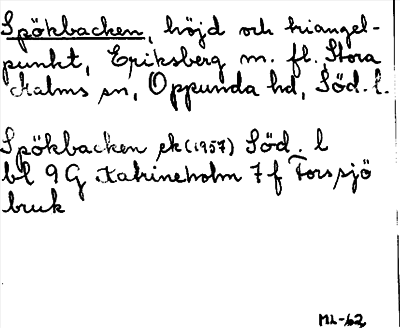 Spökbacken, höjd och triangel-
punkt, Eriksberg m. fl. Stora
Malms sn, Oppunda hd, Söd. l.
Spökbacken ek (1957) Söd. l
bl 9 G Katrineholm 7 f Forssjö
bruk
ML-62